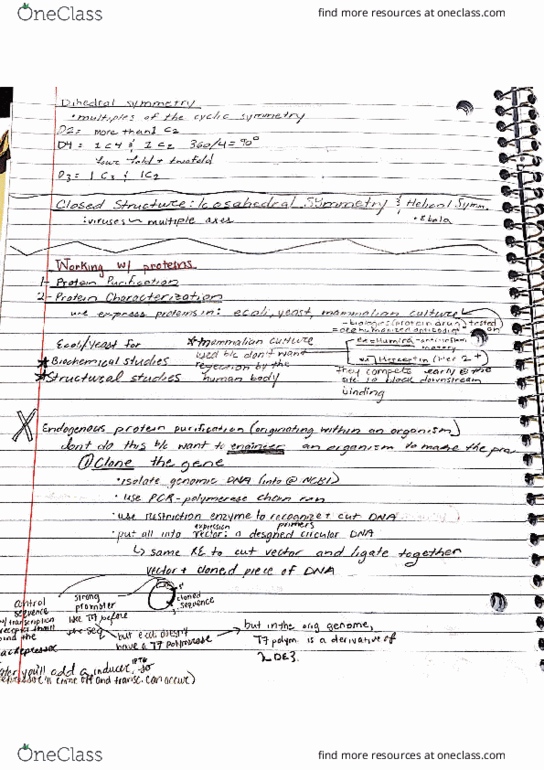 OneClass
find more resources at oneclass.com
Dihedral symmetry
• multiples of the cyclic symmetry
D2 = more than 1 C2
D4 = 1 C4 & 1 C2 360/4 = 90°
four fold + twofold
D3 = 1 C3 & 1C2
Closed Structure: Icosahedral Symmetry & Helical Symm.
: viruses ~ multiple axes
• Ebola
Working w/ proteins
1- Protein Purification
2- Protein Characterization
we express proteins in: ecoli, yeast, mammalian culture
- biologics (protein drug) tested on
= humanized antibodies
Ecoli/yeast for
★ Biochemical studies
★ Structural studies
★ mammalian culture
used b/c don't want
rejection by the
human body
ex = Humira =
vs Herceptin (Her 2+)
they compete @ the
site to block downstream
binding
X Endogenous protein purification (originating within an organism)
dont do this b/c want to engineer an organism to make the pro
① Clone the gene
• isolate genomic DNA (into @ NCBI)
• use PCR - polymerase chain rxn
primers
• use restriction enzyme to recognize + cut DNA
expression
• put all into vector: a designed circular DNA
↳ same RE to cut vector and ligate together
vector + cloned piece of DNA
control
sequence
w/ transcription
strong
promoter
like T7 before
the seq
cloned
sequence
but e.coli doesn't
have a T7 polymerase
but in the orig genome,
T7 polym. is a derivative of
λ DE3.
lac repressor
later you'll add a inducer, IPTG so
come off and transc. can occur)
OneClass
find more resources at oneclass.com